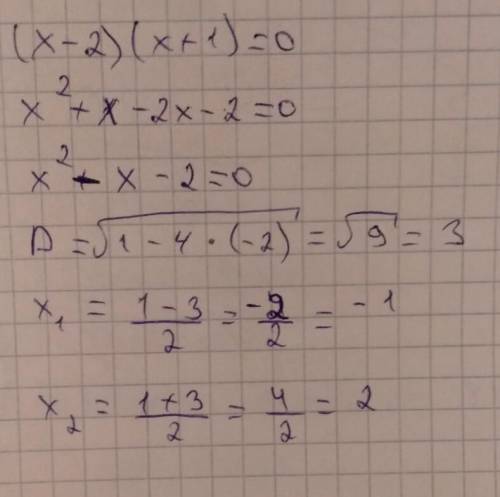 (x-2)(x+1)=0
x²+x-2x-2=0
x²-x-2=0
D=√(1-4·(-2))=√9=3
x₁=(1-3)/2=-2/2=-1
x₂=(1+3)/2=4/2=2